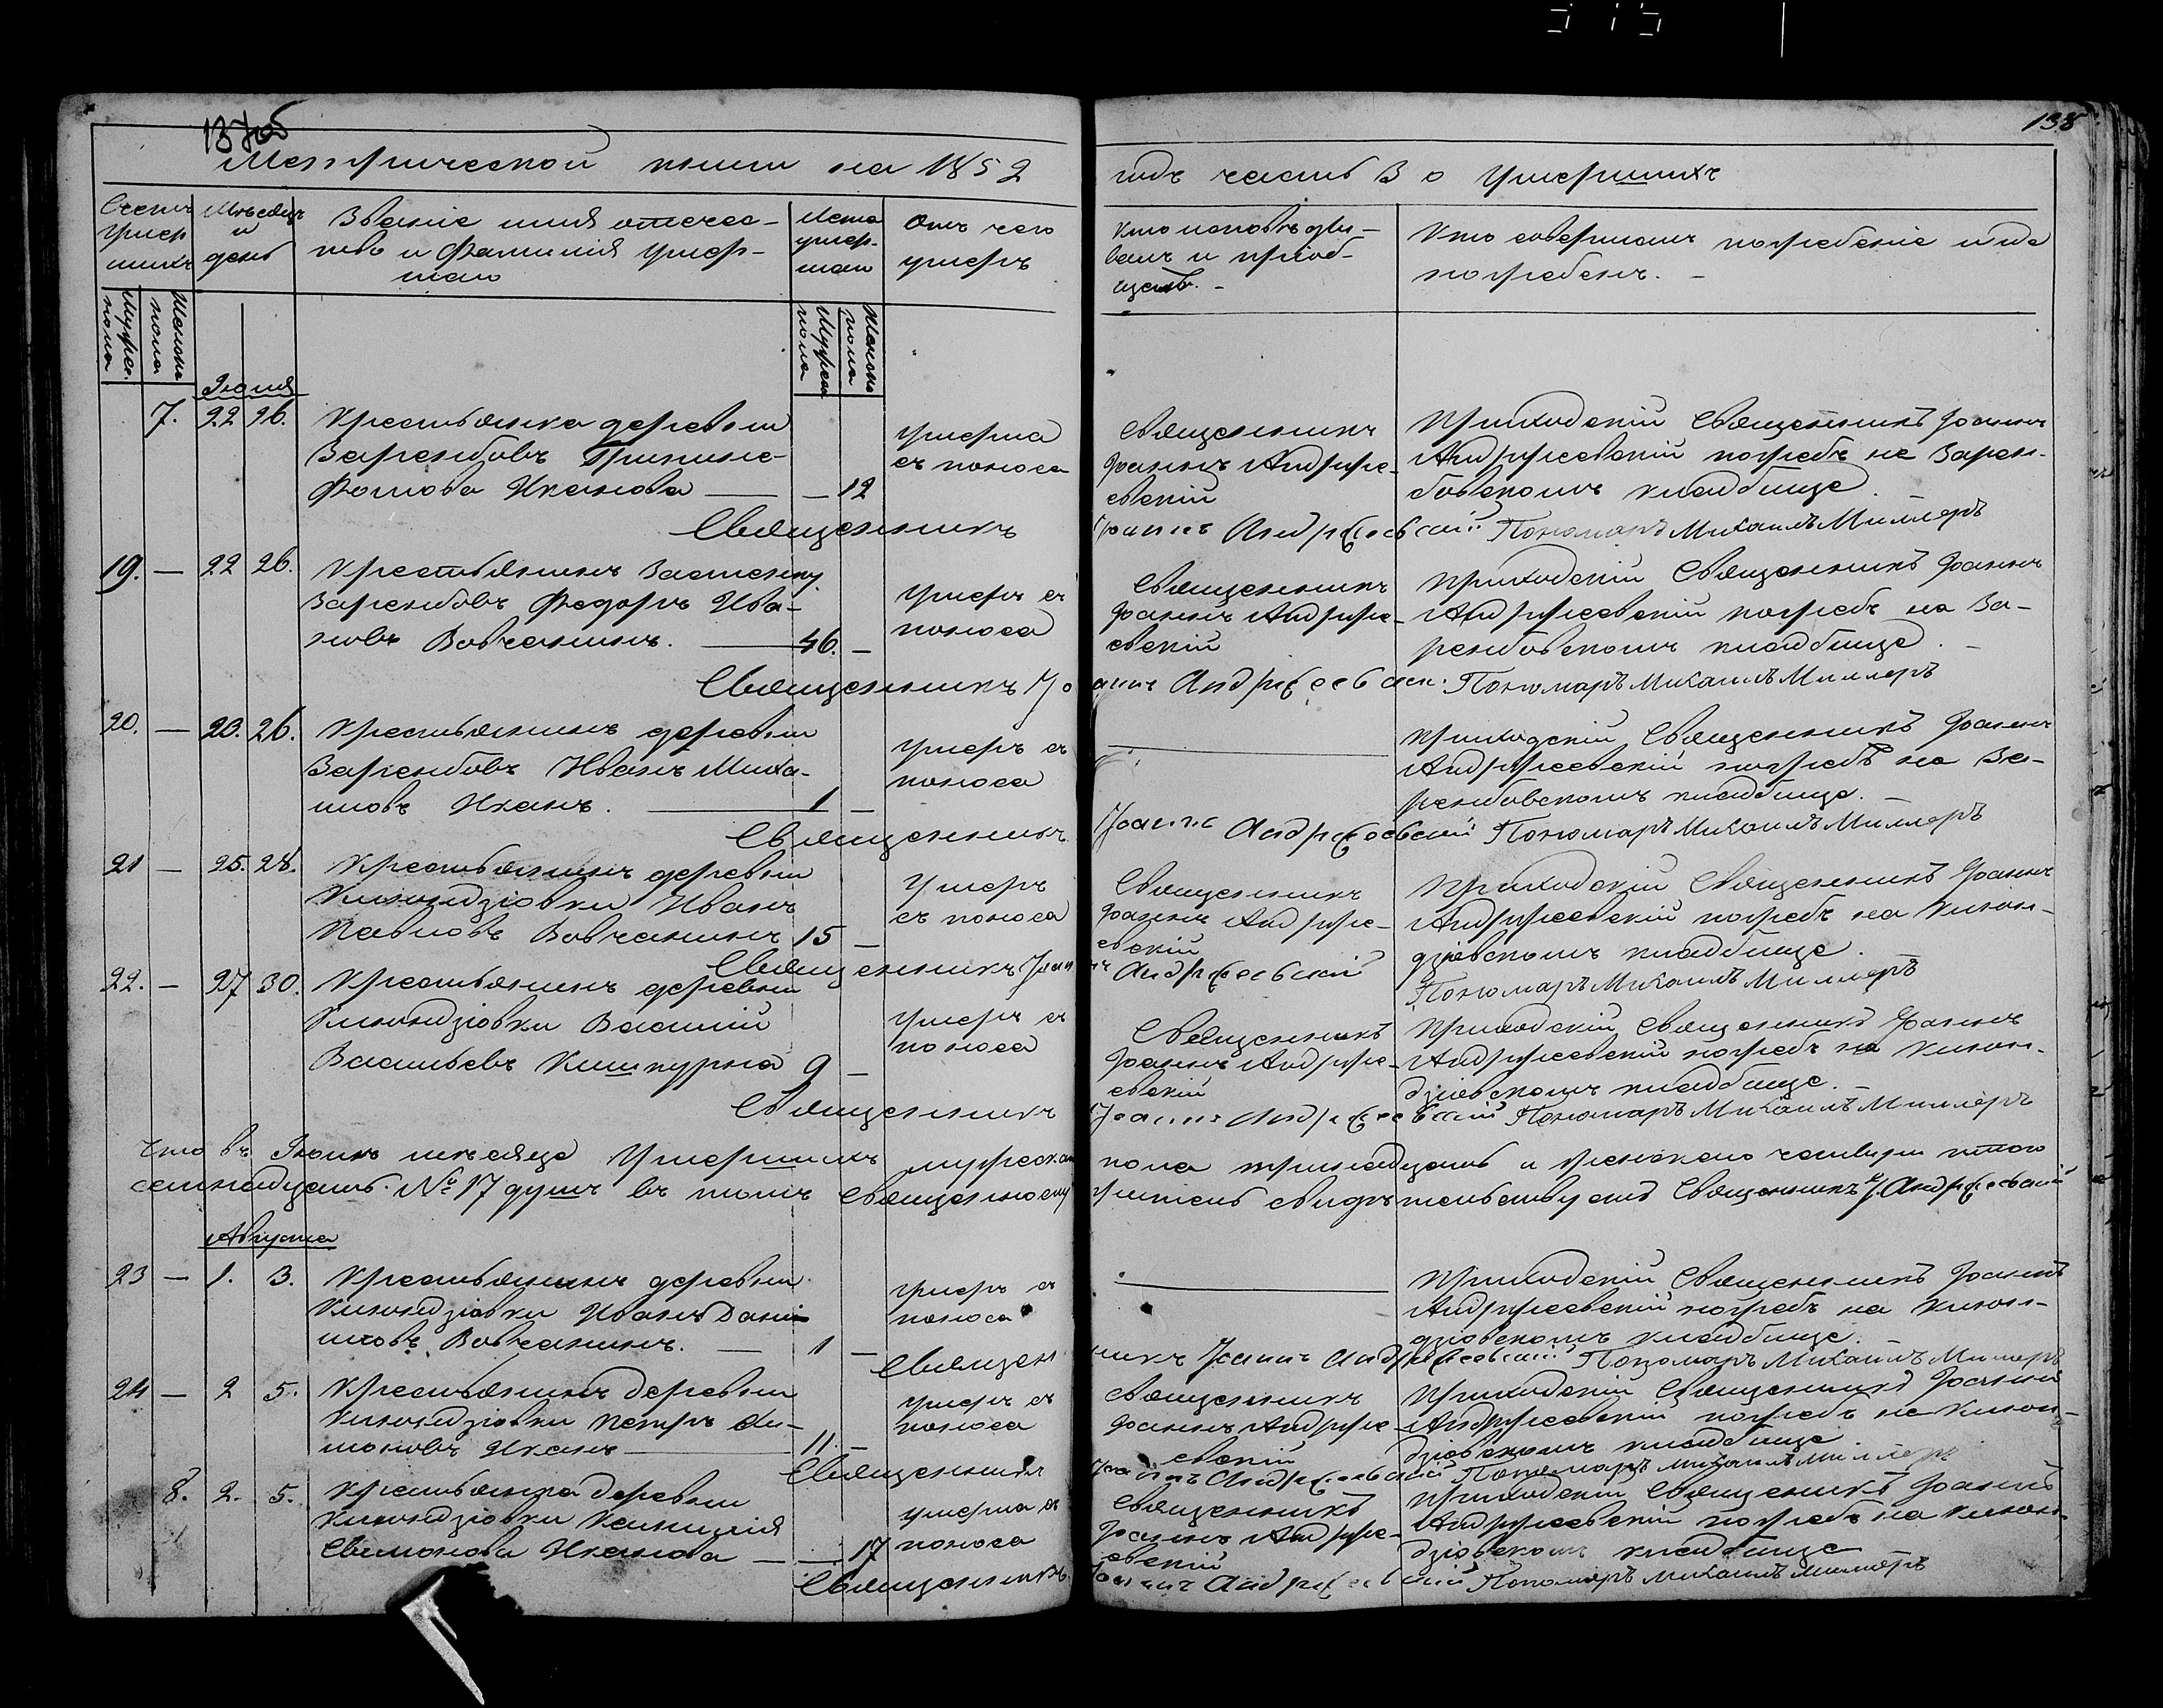 137об
138
Метрической книги на 1852
годъ часть 3 о умершихъ
Счетъ умершихъ
Мѣсяцъ и день
Званіе имя отечес-
тво и Фамилія умер-
шаго
Лета умер-
шаго
Отъ чего
умеръ
Кто исповѣды-
валъ и пріоб-
щалъ. -
Кто совершалъ погребеніе и где
погребенъ. -
Мужес. пола
Женска пола
Мужеск пола
Женска пола
Іюлія
7. 22 26. Крестьянка деревни
Зарембовъ
Фомова Иканова — — 12
умерла
съ поноса
Священникъ
Іоаннъ Андруже-
евскій
Приходскій Священникъ Іоаннъ
Андружеевскій погребъ на Зарем-
бовскомъ кладбище.
Священникъ Іоаннъ Андружеевскій Пономаръ Михаилъ Миллеръ
19. — 22 26. Крестьянинъ Застенку
Зарембовъ Федоръ Ива-
новъ Вовчанинъ. — 46. —
умеръ съ
поноса
Священникъ
Іоаннъ Андруже-
евскій
Приходскій Священникъ Іоаннъ
Андружеевскій погребъ на За-
рембовскомъ кладбище. —
Священникъ Іоаннъ Андружеевскій Пономаръ Михаилъ Миллеръ
20. — 23. 26. Крестьянинъ деревни
Зарембовъ Иванъ Миха-
иловъ Иканъ. — 1 —
умеръ съ
поноса
—
Приходскій Священникъ Іоаннъ
Андружеевскій погребъ на За-
рембовскомъ кладбище. —
Священникъ Іоаннъ Андружеевскій Пономаръ Михаилъ Миллеръ
21 — 25. 28. Крестьянинъ деревни
Иванъ
Павловъ Вовчанинъ 15 —
умеръ
съ поноса
Священникъ
Іоаннъ Андруже-
евскій
Приходскій Священникъ Іоаннъ
Андружеевскій погребъ на
кладбище.
Священникъ Іоаннъ Андружеевскій
Пономаръ Михаилъ Миллеръ
22. — 27 30. Крестьянинъ деревни
Василій
Васильевъ Кишкурна 9 —
умеръ съ
поноса
Священникъ
Іоаннъ Андруже-
евскій
Приходскій Священникъ Іоаннъ
Андружеевскій погребъ на
кладбище. —
Священникъ Іоаннъ Андружеевскій Пономаръ Михаилъ Миллеръ
Что въ Іюлѣ месяцѣ Умершихъ мужеска пола тринадцать и женскаго четыри итого
семнадцать № 17 душъ въ томъ свидѣтельствуемъ Священникъ І. Андружеевскій
Августа
23 — 1. 3. Крестьянинъ деревни
Иванъ Дани-
иловъ Вовчанинъ. — 1 —
умеръ съ
поноса
—
Приходскій Священникъ Іоаннъ
Андружеевскій погребъ на
кладбище. —
Священникъ Іоаннъ Андружеевскій Пономаръ Михаилъ Миллеръ
24 — 2 5. Крестьянинъ деревни
Петръ Си-
моновъ Иканъ — 11. —
умеръ съ
поноса
Священникъ
Іоаннъ Андруже-
евскій
Приходскій Священникъ Іоаннъ
Андружеевскій погребъ на
кладбище
Священникъ Іоаннъ Андружеевскій Пономаръ Михаилъ Миллеръ
8. 2. 5. Крестьянка деревни
Симонова Иканова — — 17
умерла съ
поноса
Священникъ
Іоаннъ Андруже-
евскій
Приходскій Священникъ Іоаннъ
Андружеевскій погребъ на
кладбище
Священникъ Іоаннъ Андружеевскій Пономаръ Михаилъ Миллеръ